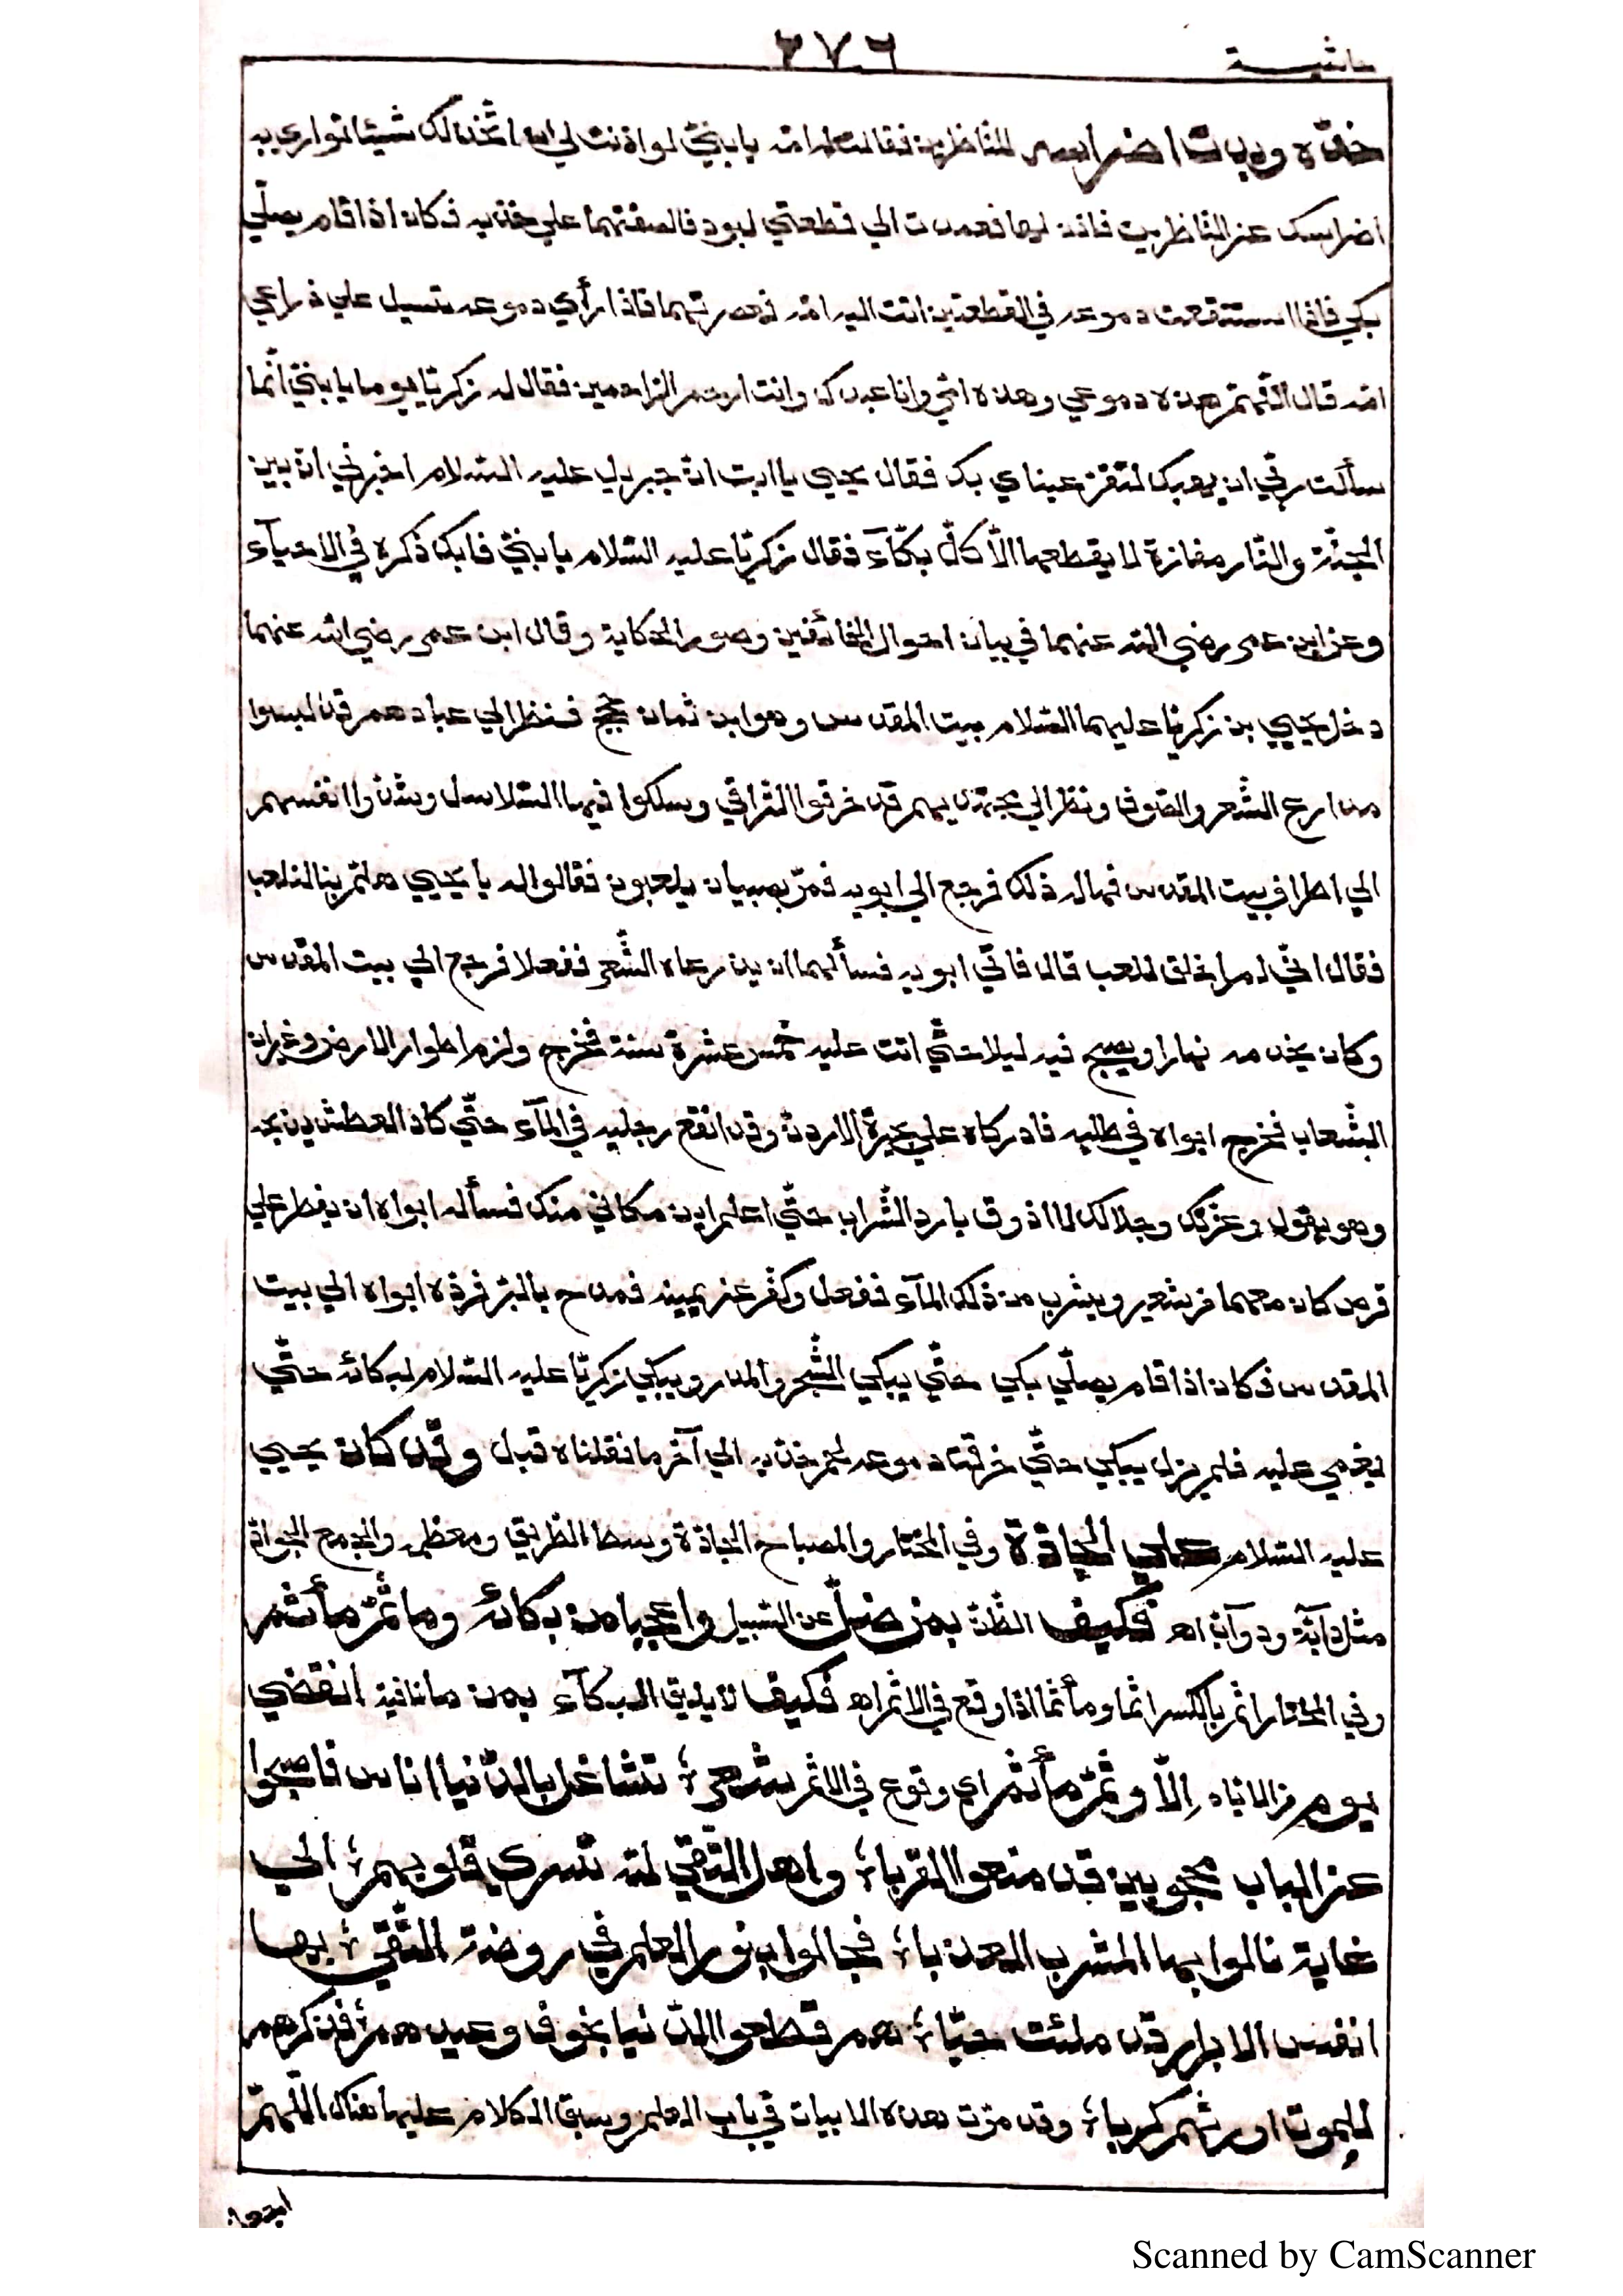 حاشية
٣٧٦
خدّه وبدت اضراسه للناظرين فقالت له امّه يابنيّ لو اذنت لي ان اتّخذ لك شيئا تواري به
اضراسك عن الناظرين فاذن لها فعمدت الي قطعتي لبود فالصقتهما علي خدّيه فكان اذا قام يصلّي
بكي فاذا استنقعت دموعه في القطعتين اتت اليه امّه فعصرتهما فاذا رأي دموعه تسيل علي ذراعي
امّه قال اللّهمّ هذه دموعي وهذه امّي وانا عبدك وانت ارحم الراحمين فقال له زكريّا يوما يابنيّ انّما
سألت ربّي ان يهبك لتقرّ عيناي بك فقال يحيي ياابت انّ جبريل عليه السّلام اخبرني انّ بين
الجنّة والنّار مفازة لا يقطعها الّا كلّ بكّآء فقال زكريّا عليه السّلام يابنيّ فابك ذكره في الاحيآء
وعن ابن عمر رضي الله عنهما في بيان احوال الخائفين وصور الحكاية وقال ابن عمر رضي الله عنهما
دخل يحيي بن زكريّا عليهما السّلام بيت المقدس وهو ابن ثمان حجج فنظر الي عبادهم قد لبسوا
مدارع الشّعر والصّوف ونظر الي مجتهديهم قد خرقوا التّراقي وسلكوا فيها السّلاسل وشدّوا انفسهم
الي اطراف بيت المقدس فهاله ذلك فرجع الي ابويه فمرّ بصبيان يلعبون فقالوا له يا يحيي هلمّ بنا لنلعب
فقال انّي لم اخلق للعب قال فاتي ابويه فسألهما ان يدرعاه الشّعر ففعلا فرجع الي بيت المقدس
وكان يخدمه نهارا ويصبح فيه ليلا حتّي اتت عليه خمس عشرة سنة فخرج ولزم اطوار الارض وغيران
الشّعاب فخرج ابواه في طلبه فادركاه علي بحيرة الاردن وقد انقع رجليه في المآء حتّي كاد العطش يذبحه
وهو يقول وعزّتك وجلالك لا اذوق بارد الشّراب حتّي اعلم اين مكاني منك فسأله ابواه ان يفطر علي
قرص كان معهما من شعير ويشرب من ذلك المآء ففعل وكفّر عن يمينه فمدح بالبرّ فردّه ابواه الي بيت
المقدس فكان اذا قام يصلّي بكي حتّي يبكي الشّجر والمدر ويبكي زكريّا عليه السّلام لبكائه حتّي
يغمي عليه فلم يزل يبكي حتّي خرقت دموعه لحم خدّيه الي آخر ما نقلناه قبل وقد كان يحيي
عليه السّلام علي الجادّة وفي المختار والمصباح الجادّة وسط الطّريق ومعظمه والجمع الجوادّ
مثل دآبّة ودوآبّ اهـ فكيف الظّنّ بمن ضلّ عن السّبيل واعجبا من بكائه وما ثمّ مأثم
وفي المختار اثم بالكسر اثما ومأثما اذا وقع في الاثم اهـ فكيف لا يليق البكآء بمن ما نافية انقضي
يوم من ايّامه الّا وثمّ مأثم اي وقوع في الاثم شعر ؛ تشاغل بالدّنيا اناس فاصبحوا
عن الباب محجوبين قد منعوا القربا ؛ واهل التّقي لله تسري قلوبهم ؛ الي
غاية نالوا بها المشرب العذبا ؛ فجالوا بنور العلم في روضة التّقي ؛ بها
انفس الابرار قد ملئت حبّا ؛ هم قطعوا الدّنيا بخوف وعيدهم ؛ فذكرهم
للموت اورثهم كربا ؛ وقد مرّت هذه الابيات في باب العلم وسبق الكلام عليها هناك اللّهمّ
Scanned by CamScanner